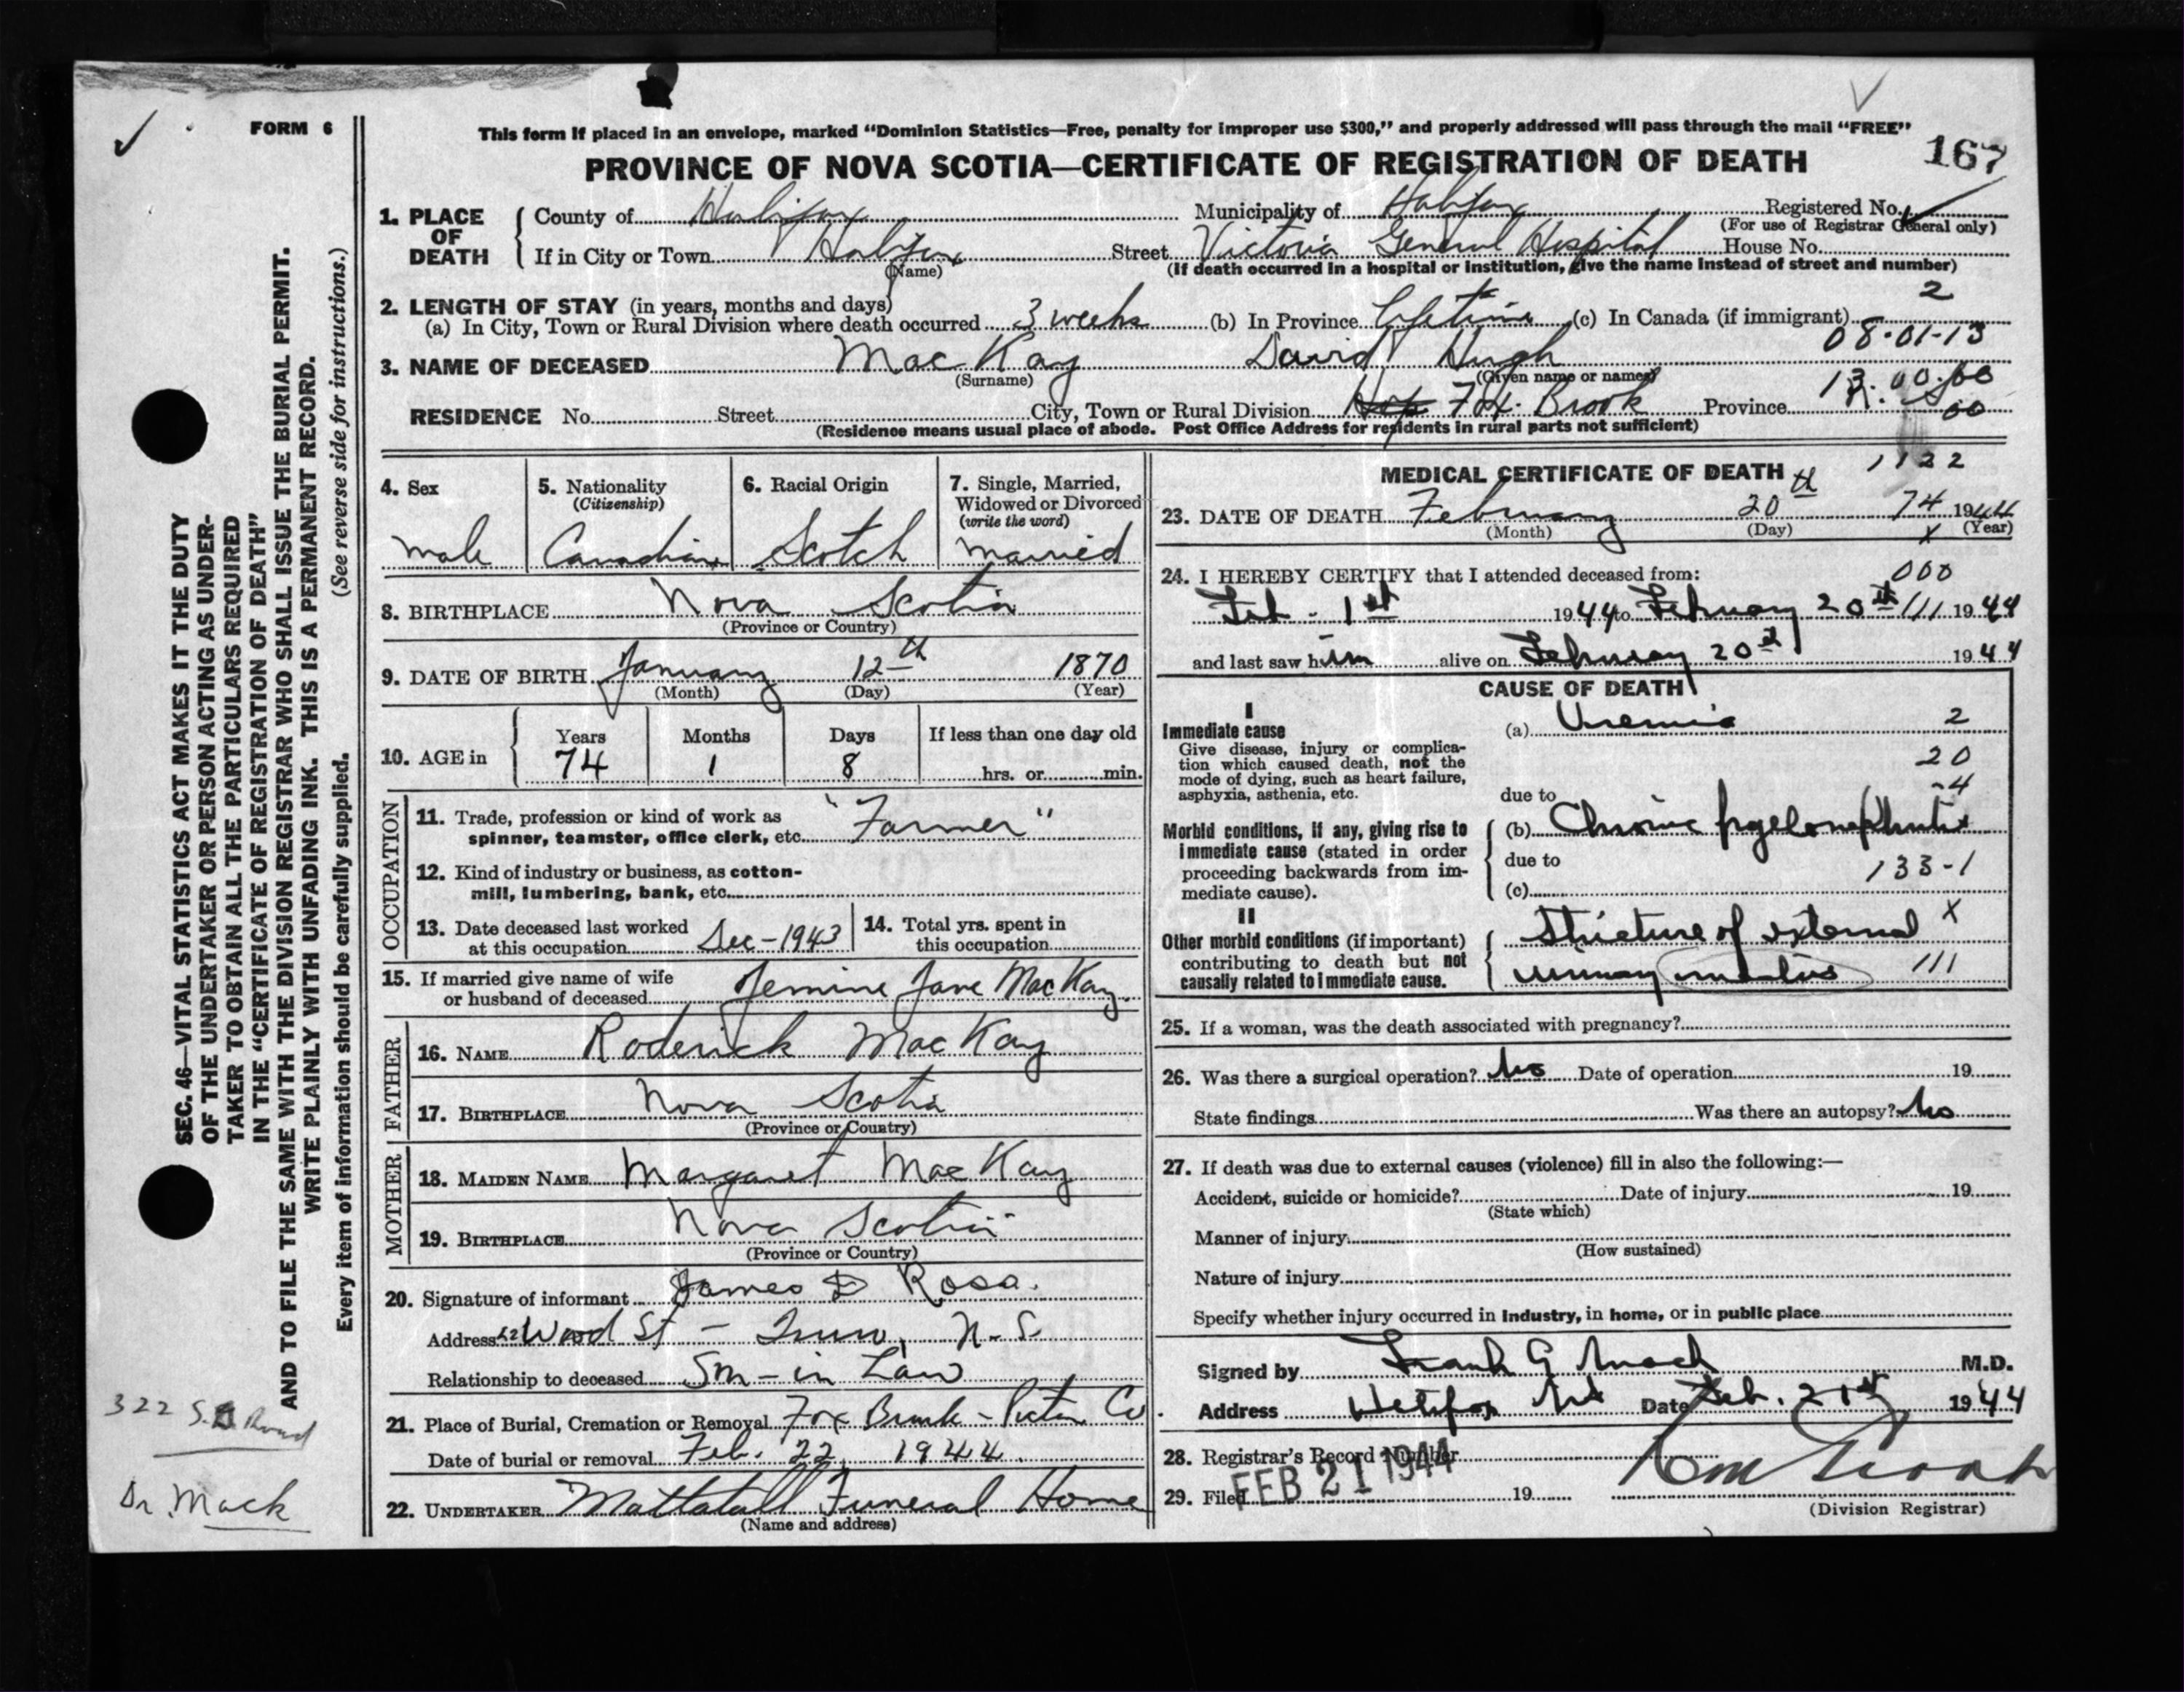 FORM 6
This form if placed in an envelope, marked “Dominion Statistics—Free, penalty for improper use $300,” and properly addressed will pass through the mail “FREE”
PROVINCE OF NOVA SCOTIA—CERTIFICATE OF REGISTRATION OF DEATH
167
1. PLACE OF DEATH
County of Halifax Municipality of Halifax Registered No.
(For use of Registrar General only)
If in City or Town Halifax Street Victoria General Hospital House No.
(Name) (If death occurred in a hospital or institution, give the name instead of street and number)
2. LENGTH OF STAY (in years, months and days) 2
(a) In City, Town or Rural Division where death occurred 3 weeks (b) In Province Lifetime (c) In Canada (if immigrant)
08-01-13
3. NAME OF DECEASED MacKay David Hugh
(Surname) (Given name or names)
RESIDENCE No. Street City, Town or Rural Division Fox Brook Province N. S.
(Residence means usual place of abode. Post Office Address for residents in rural parts not sufficient)
4. Sex
male
5. Nationality
(Citizenship)
Canadian
6. Racial Origin
Scotch
7. Single, Married, Widowed or Divorced
(write the word)
married
8. BIRTHPLACE Nova Scotia
(Province or Country)
9. DATE OF BIRTH January 12th 1870
(Month) (Day) (Year)
10. AGE in
Years Months Days If less than one day old
74 1 8 hrs. or min.
OCCUPATION
11. Trade, profession or kind of work as
spinner, teamster, office clerk, etc. "Farmer"
12. Kind of industry or business, as cotton-
mill, lumbering, bank, etc.
13. Date deceased last worked
at this occupation Dec - 1943
14. Total yrs. spent in
this occupation
15. If married give name of wife
or husband of deceased Jemine Jane MacKay
FATHER
16. NAME Roderick MacKay
17. BIRTHPLACE Nova Scotia
(Province or Country)
MOTHER
18. MAIDEN NAME Margaret MacKay
19. BIRTHPLACE Nova Scotia
(Province or Country)
20. Signature of informant James D Ross.
Address 22 Wood St - Truro, N.S.
Relationship to deceased Son-in Law
21. Place of Burial, Cremation or Removal Fox Brook - Pictou Co
Date of burial or removal Feb. 22, 1944.
22. UNDERTAKER Mattatall Funeral Home
(Name and address)
MEDICAL CERTIFICATE OF DEATH
1122
23. DATE OF DEATH February 20th 74 1944
(Month) (Day) (Year)
24. I HEREBY CERTIFY that I attended deceased from: 000
Feb - 1st 1944 to February 20th 111 1944
and last saw him alive on February 20th 1944
CAUSE OF DEATH
I
Immediate cause (a) Uremia 2
Give disease, injury or complica-
tion which caused death, not the 20
mode of dying, such as heart failure, -4
asphyxia, asthenia, etc. due to
Morbid conditions, if any, giving rise to (b) Chronic pyelonephritis
immediate cause (stated in order due to
proceeding backwards from im- 133-1
mediate cause). (c)
II
Other morbid conditions (if important) Stricture of external X
contributing to death but not
causally related to immediate cause. urinary meatus 111
25. If a woman, was the death associated with pregnancy?
26. Was there a surgical operation? No Date of operation 19
State findings Was there an autopsy? No
27. If death was due to external causes (violence) fill in also the following:—
Accident, suicide or homicide? Date of injury 19
(State which)
Manner of injury
(How sustained)
Nature of injury
Specify whether injury occurred in industry, in home, or in public place
Signed by Frank G Mack M.D.
Address Halifax NS Date Feb. 21st 1944
28. Registrar's Record Number
29. Filed FEB 21 1944 19
(Division Registrar)
SEC. 46—VITAL STATISTICS ACT MAKES IT THE DUTY
OF THE UNDERTAKER OR PERSON ACTING AS UNDER-
TAKER TO OBTAIN ALL THE PARTICULARS REQUIRED
IN THE “CERTIFICATE OF REGISTRATION OF DEATH”
AND TO FILE THE SAME WITH THE DIVISION REGISTRAR WHO SHALL ISSUE THE BURIAL PERMIT.
WRITE PLAINLY WITH UNFADING INK. THIS IS A PERMANENT RECORD.
Every item of information should be carefully supplied. (See reverse side for instructions.)
322 S.
Dr. Mack